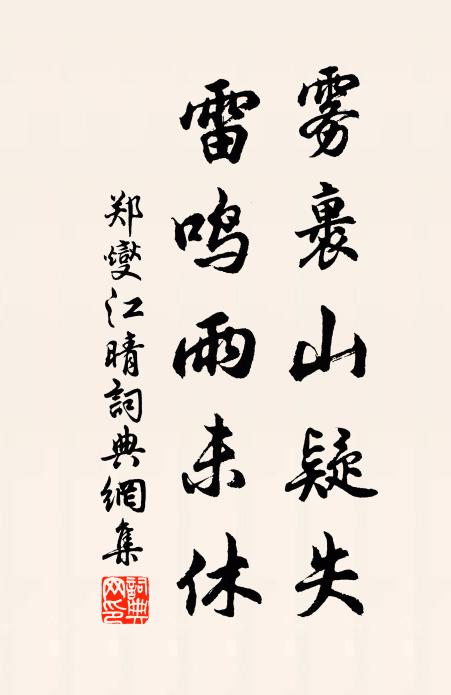 雾裹山疑失
雷鸣雨未休
郑燮江晴詞典網集
詞典網印